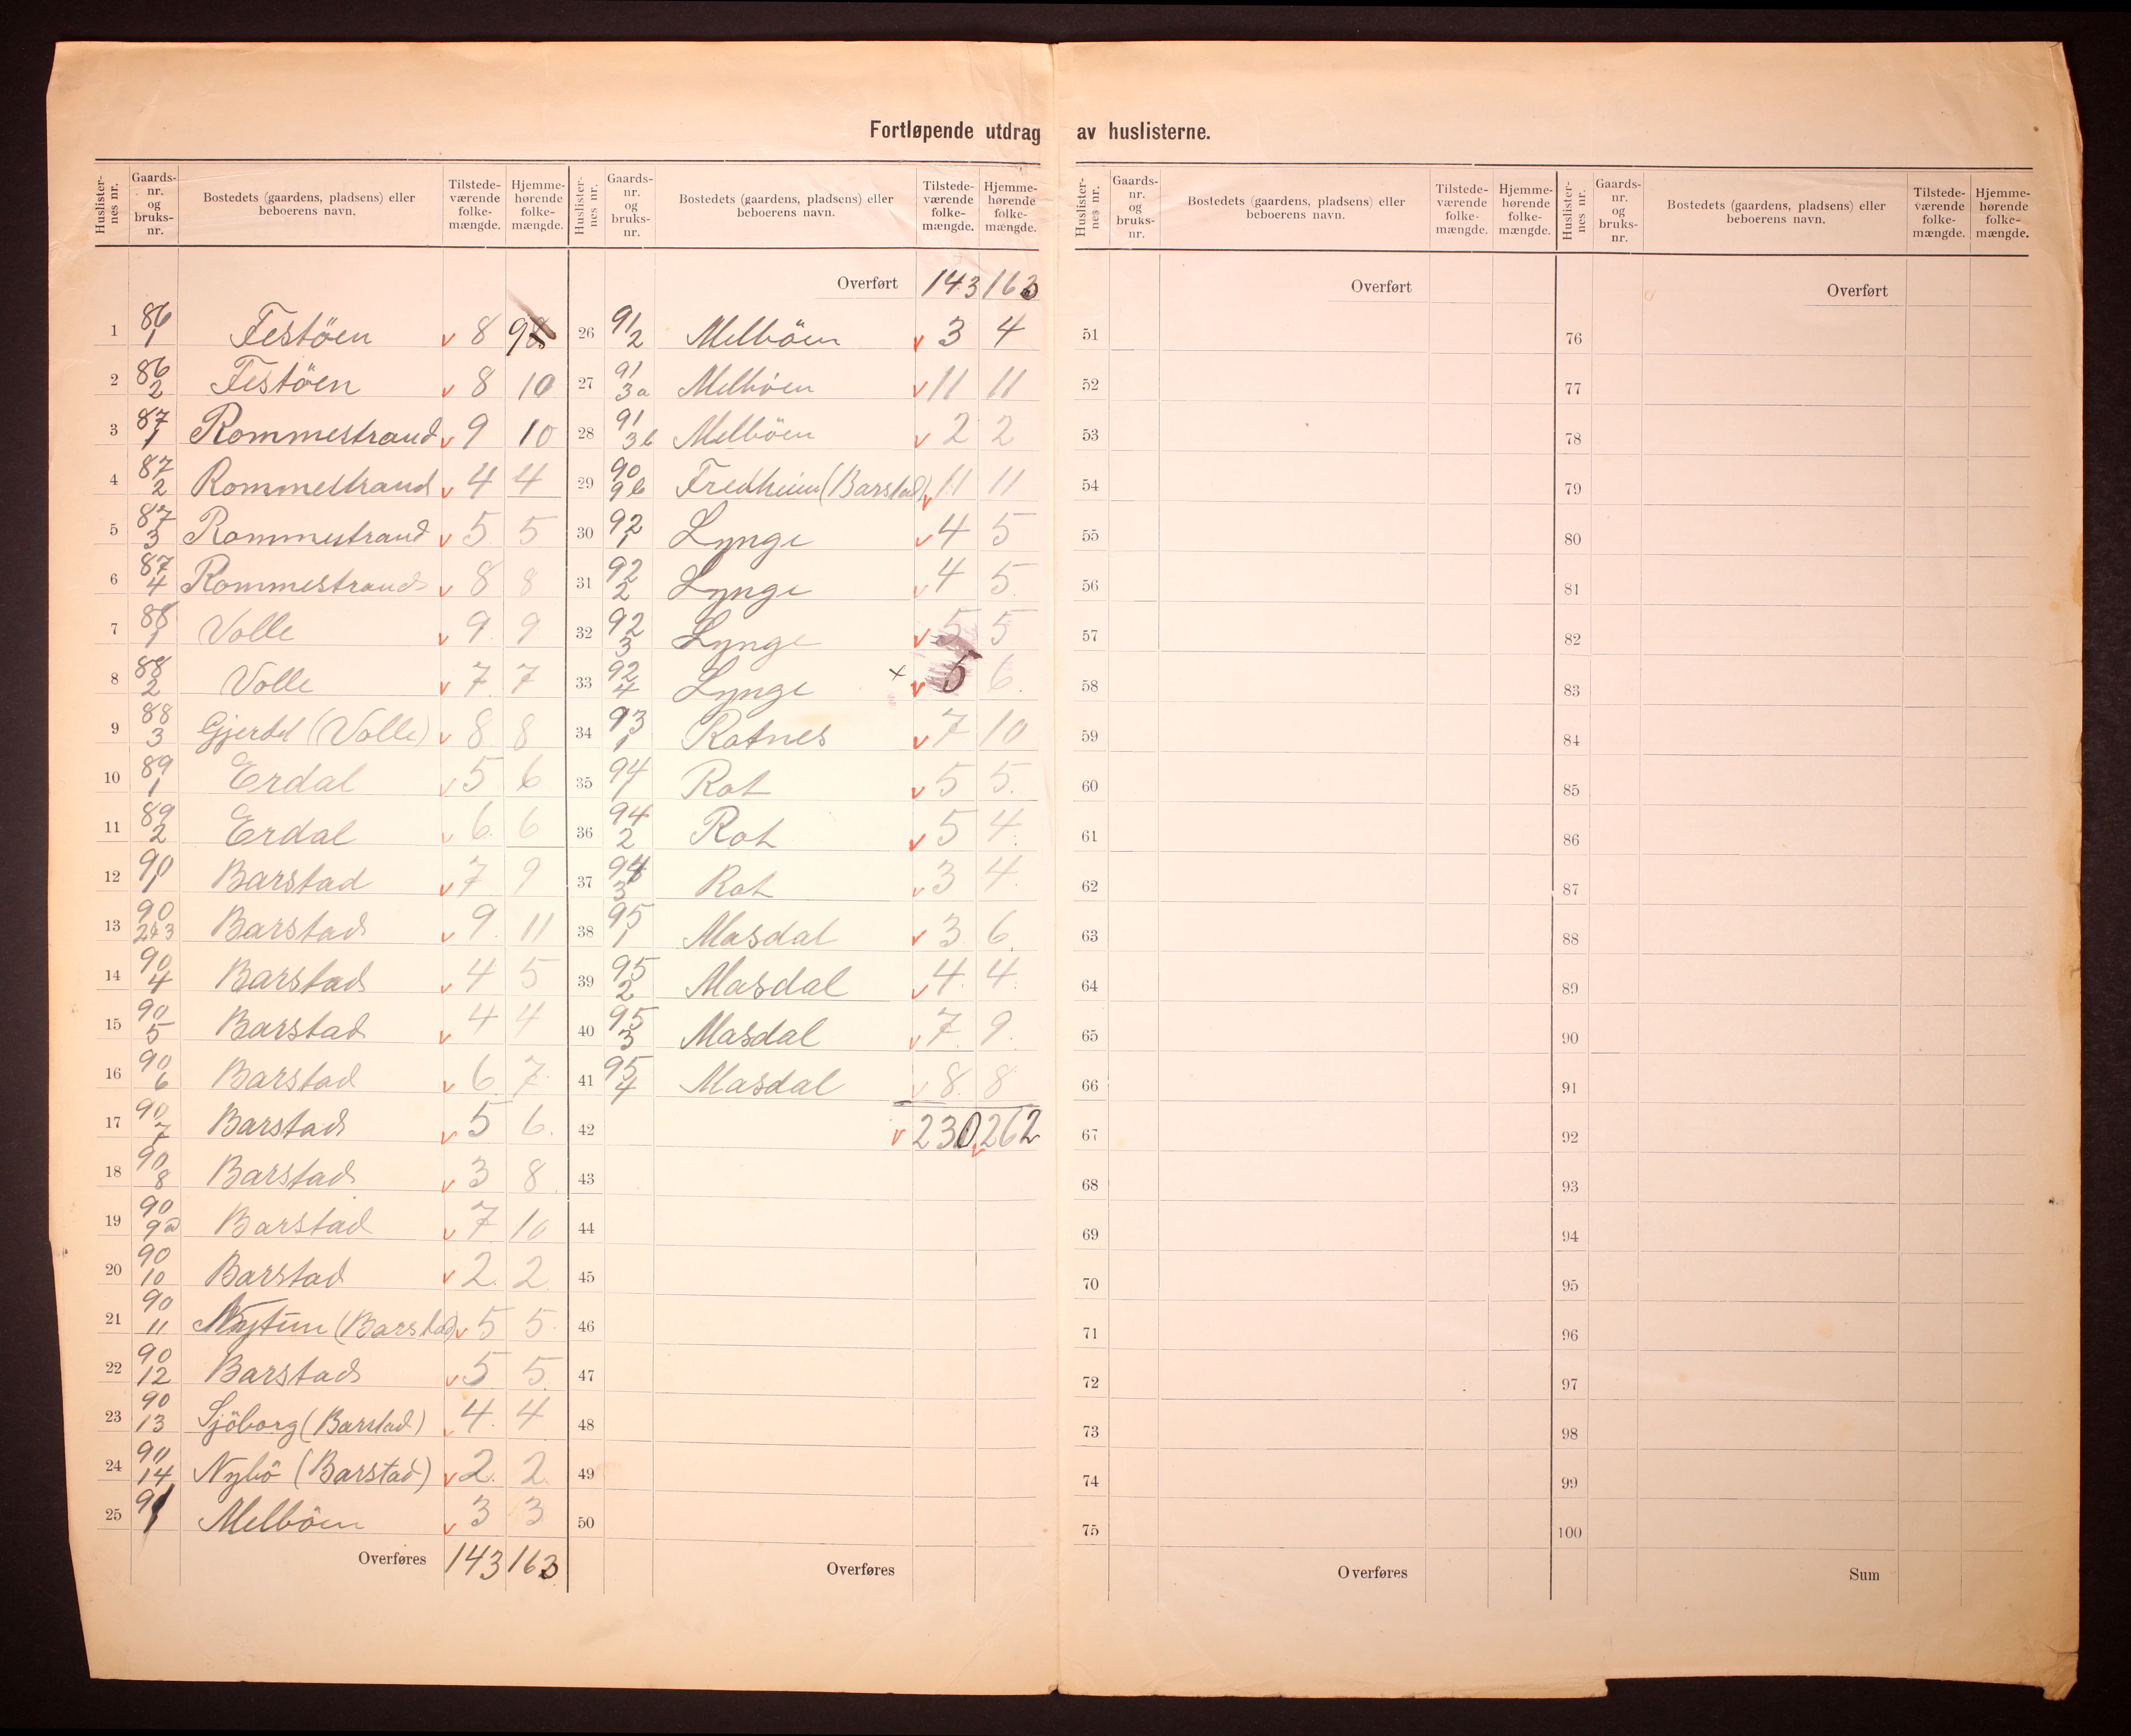 Fortløpende utdrag av huslisterne.
Huslister-nes nr. Gaards-nr. og bruks-nr. Bostedets (gaardens, pladsens) eller beboerens navn. Tilstede-værende folke-mængde. Hjemme-hørende folke-mængde.
1 86/1 Festöen v 8 9
2 86/2 Festöen v 8 10
3 87/1 Rommestrand v 9 10
4 87/2 Rommestrand v 4 4
5 87/3 Rommestrand v 5 5
6 87/4 Rommestrand v 8 8
7 88/1 Volle v 9 9
8 88/2 Volle v 7 7
9 88/3 Gjerdet (Volle) v 8 8
10 89/1 Erdal v 5 6
11 89/2 Erdal v 6 6
12 90/1 Barstad v 7 9
13 90/2&3 Barstad v 9 11
14 90/4 Barstad v 4 5
15 90/5 Barstad v 4 4
16 90/6 Barstad v 6 7
17 90/7 Barstad v 5 6
18 90/8 Barstad v 3 8
19 90/9a Barstad v 7 10
20 90/10 Barstad v 2 2
21 90/11 Nytun (Barstad) v 5 5
22 90/12 Barstad v 5 5
23 90/13 Sjöborg (Barstad) v 4 4
24 90/14 Nybö (Barstad) v 2 2
25 91/1 Melböen v 3 3
Overføres 143 163
Huslister-nes nr. Gaards-nr. og bruks-nr. Bostedets (gaardens, pladsens) eller beboerens navn. Tilstede-værende folke-mængde. Hjemme-hørende folke-mængde.
Overført 143 163
26 91/2 Melböen v 3 4
27 91/3a Melböen v 11 11
28 91/3b Melböen v 2 2
29 90/9b Fredheim (Barstad) v 11 11
30 92/1 Lynge v 4 5
31 92/2 Lynge v 4 5
32 92/3 Lynge v 5 5
33 92/4 Lynge x v 5 6
34 93/1 Ratnes v 7 10
35 94/1 Rot v 5 5
36 94/2 Rot v 5 4
37 94/3 Rot v 3 4
38 95/1 Masdal v 3 6
39 95/2 Masdal v 4 4
40 95/3 Masdal v 7 9
41 95/4 Masdal v 8 8
42 v 230 v 262
43
44
45
46
47
48
49
50
Overføres
Huslister-nes nr. Gaards-nr. og bruks-nr. Bostedets (gaardens, pladsens) eller beboerens navn. Tilstede-værende folke-mængde. Hjemme-hørende folke-mængde.
Overført
51
52
53
54
55
56
57
58
59
60
61
62
63
64
65
66
67
68
69
70
71
72
73
74
75
Overføres
Huslister-nes nr. Gaards-nr. og bruks-nr. Bostedets (gaardens, pladsens) eller beboerens navn. Tilstede-værende folke-mængde. Hjemme-hørende folke-mængde.
Overført
76
77
78
79
80
81
82
83
84
85
86
87
88
89
90
91
92
93
94
95
96
97
98
99
100
Sum